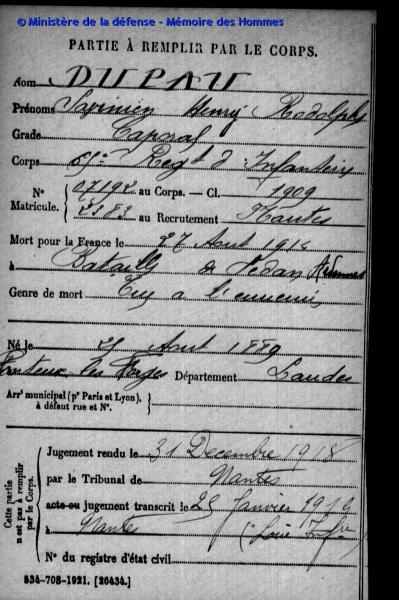 © Ministère de la défense - Mémoire des Hommes
PARTIE À REMPLIR PAR LE CORPS.
Nom DUPAU
Prénoms Savinien Henry Rodolphe
Grade Caporal
Corps 65e Regt d'Infanterie
N° Matricule. 07192 au Corps. — Cl. 1909
2383 au Recrutement Nantes
Mort pour la France le 27 Aout 1914
à Bataille de Sedan Ardennes
Genre de mort Tué a l'ennemi
Né le Aout 1889
Ponteux les Forges Département Landes
Arrt municipal (pr Paris et Lyon),
à défaut rue et N°.
Cette partie n'est pas à remplir par le Corps.
Jugement rendu le 31 Decembre 1918
par le Tribunal de Nantes
acte ou jugement transcrit le 25 Janvier 1919
à Nantes (Loire Infre)
N° du registre d'état civil
534-708-1921. [26434.]